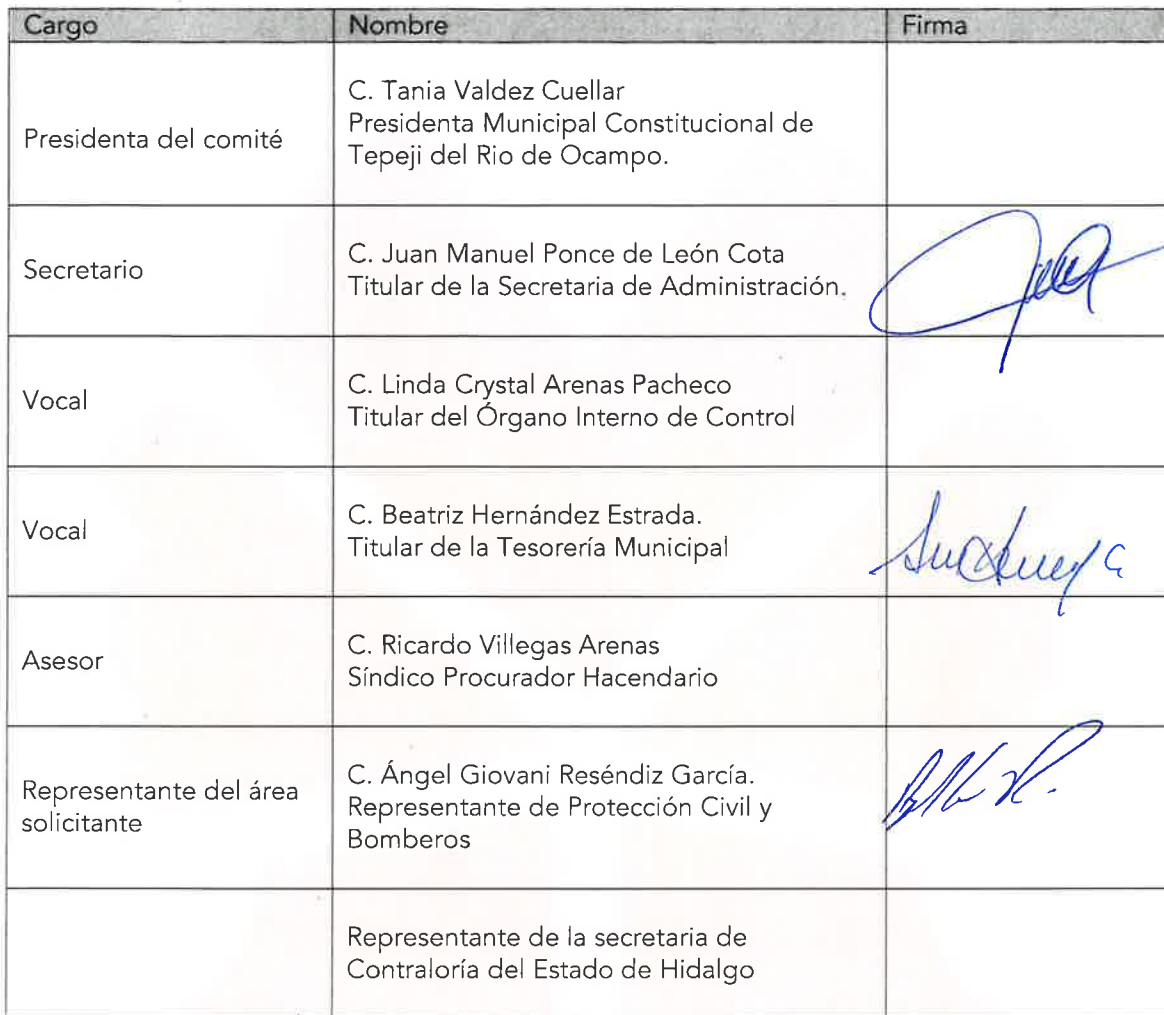 Cargo Nombre Firma
Presidenta del comité
C. Tania Valdez Cuellar
Presidenta Municipal Constitucional de
Tepeji del Rio de Ocampo.
Secretario
C. Juan Manuel Ponce de León Cota
Titular de la Secretaria de Administración.
Vocal
C. Linda Crystal Arenas Pacheco
Titular del Órgano Interno de Control
Vocal
C. Beatriz Hernández Estrada.
Titular de la Tesorería Municipal
Asesor
C. Ricardo Villegas Arenas
Síndico Procurador Hacendario
Representante del área
solicitante
C. Ángel Giovani Reséndiz García.
Representante de Protección Civil y
Bomberos
Representante de la secretaria de
Contraloría del Estado de Hidalgo